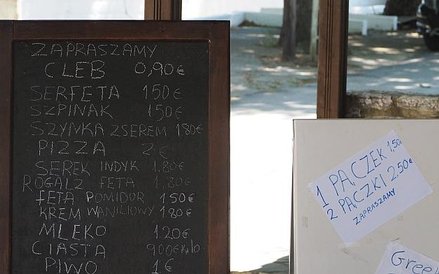 ZAPRASZAMY
CLEB 0,90€
SERFETA 150€
SZPINAK 150€
SZYNKA ZSEREM 180€
PIZZA 2€
SEREK INDYK 1.80€
ROGALZ FETA 1.80€
FETA POMIDOR 150€
KREM WANILIOWY 180€
MLEKO 120€
CIASTA 9,00€
PIWO 1€
1 PĄCZEK 1,50€
2 PĄCZKI 2,50€
ZAPRASZAMY
Gree